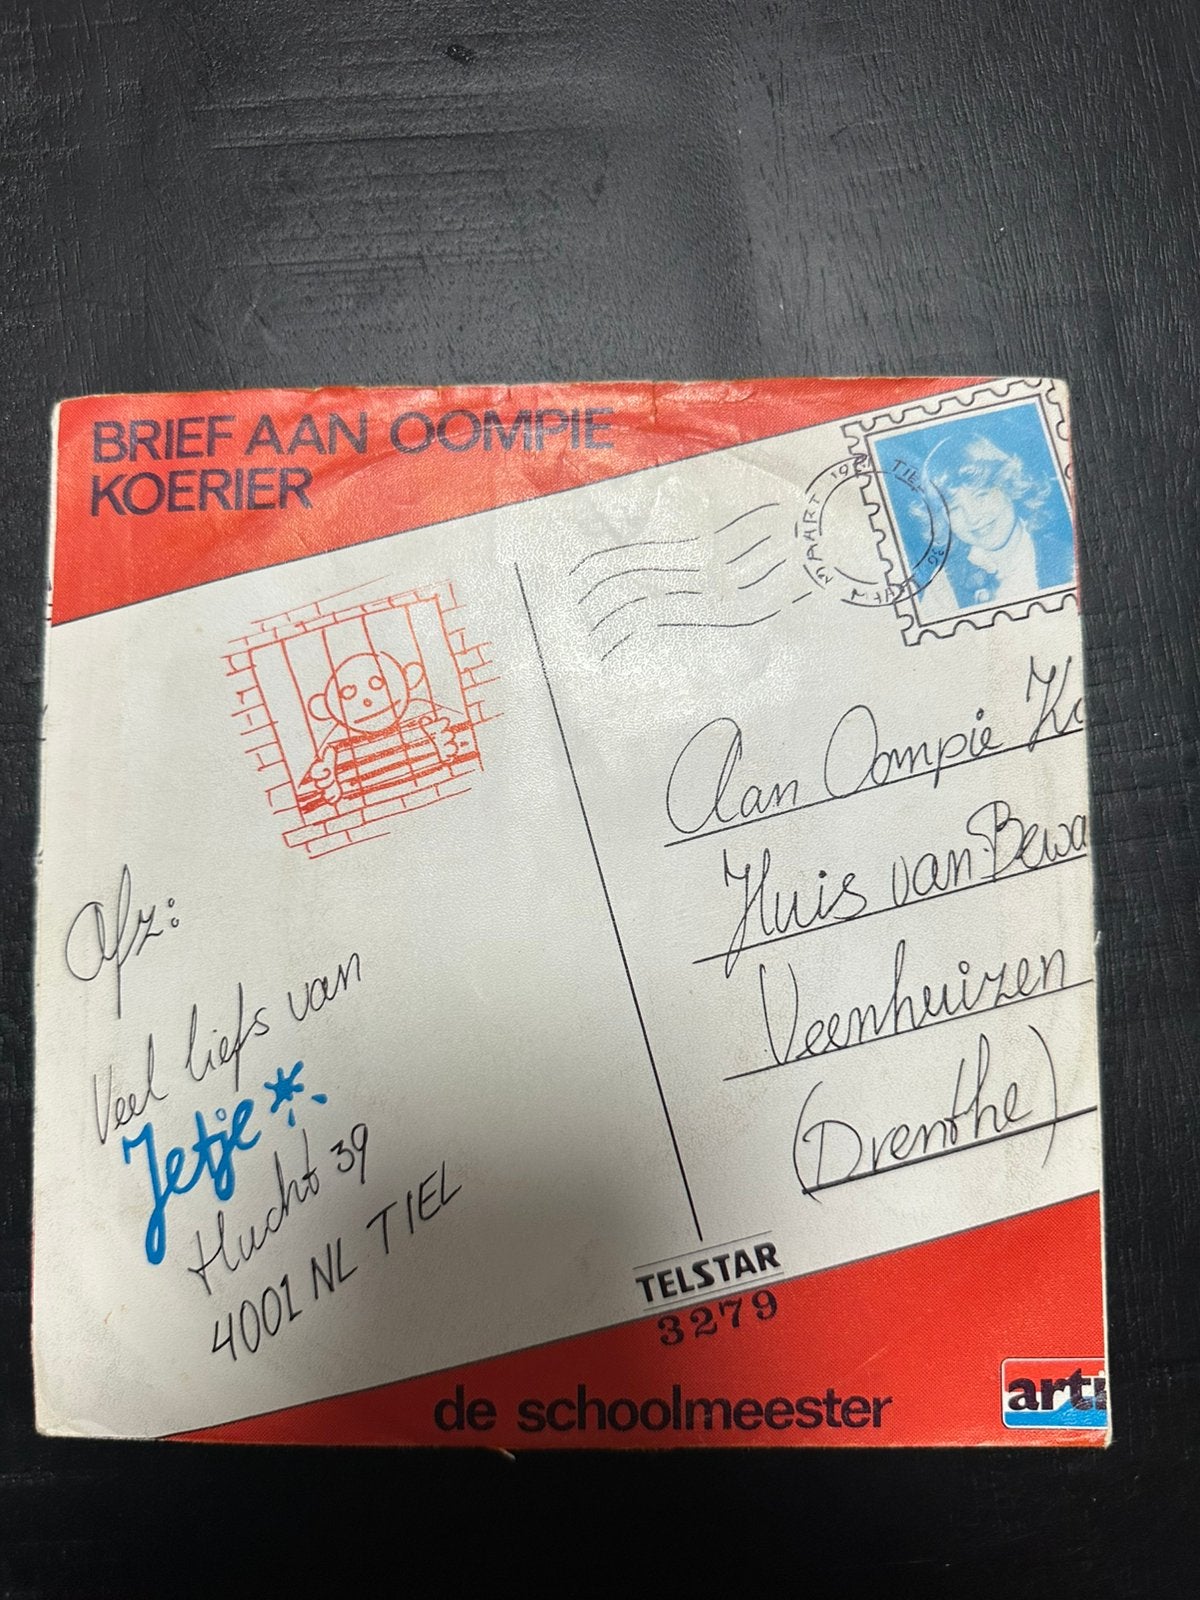 BRIEF AAN OOMPIE
KOERIER
MAART 19
TIEL
Aan Oompie K
Huis van Bewa
Veenhuizen
(Drenthe)
Afz:
Veel liefs van
Jetje
Hucht 39
4001 NL TIEL
TELSTAR
3279
de schoolmeester
arti